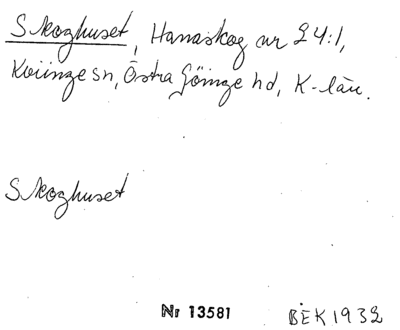 Skoghuset, Hanaskog nr 24:1,
Kviinge sn, Östra Göinge hd, K-län.
Skoghuset
Nr 13581 BEK1932